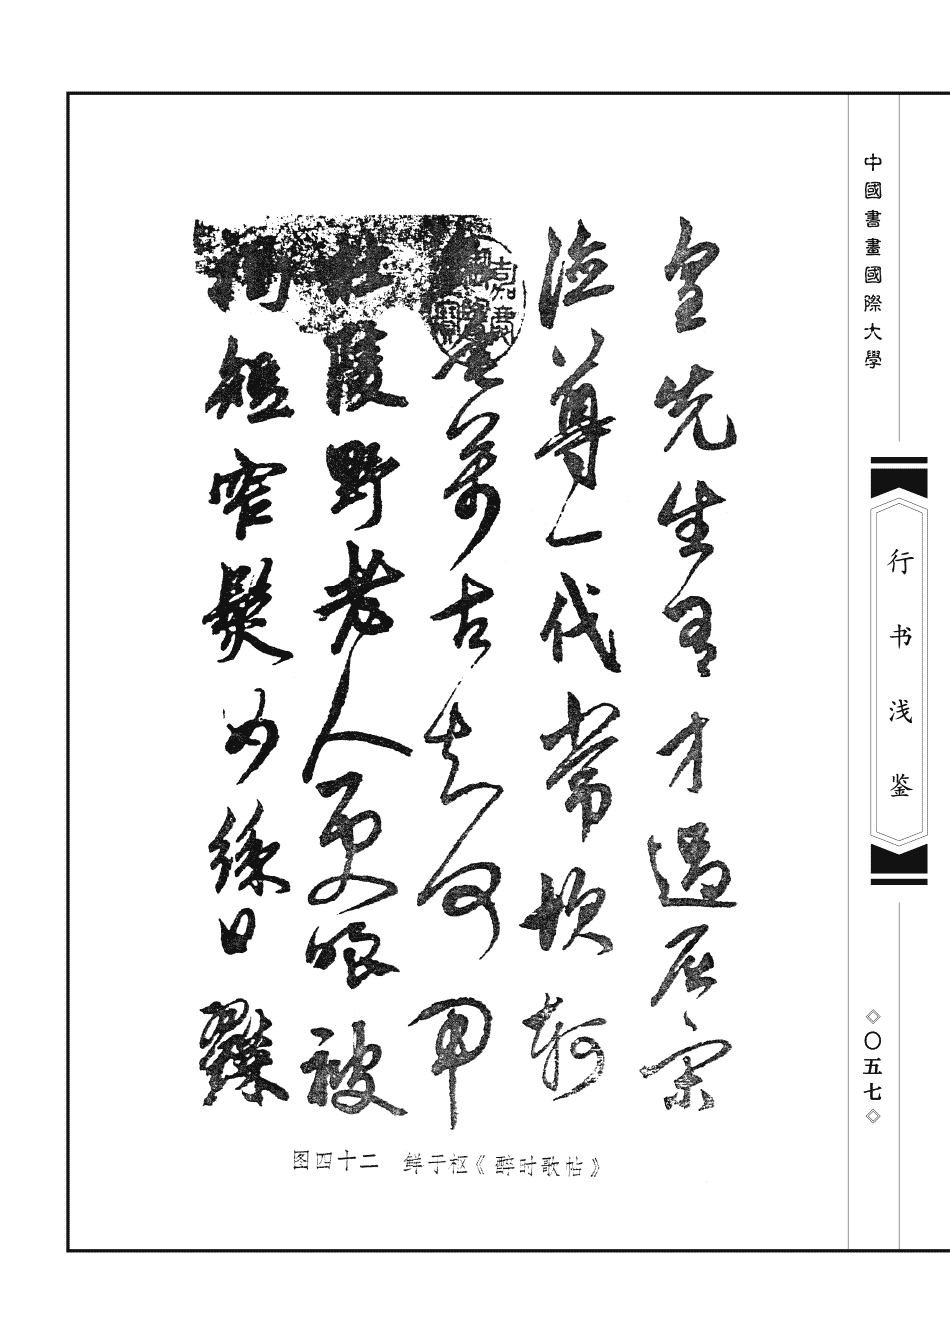 皇先生有才過屈宋
德尊一代常坎軻
名垂萬古知何用
杜陵野老人更被
褐短窄鬢如絲日糴
嘉慶御覽之寶
图四十二 鲜于枢《醉时歌帖》
中國書畫國際大學
行书浅鉴
◇〇五七◇